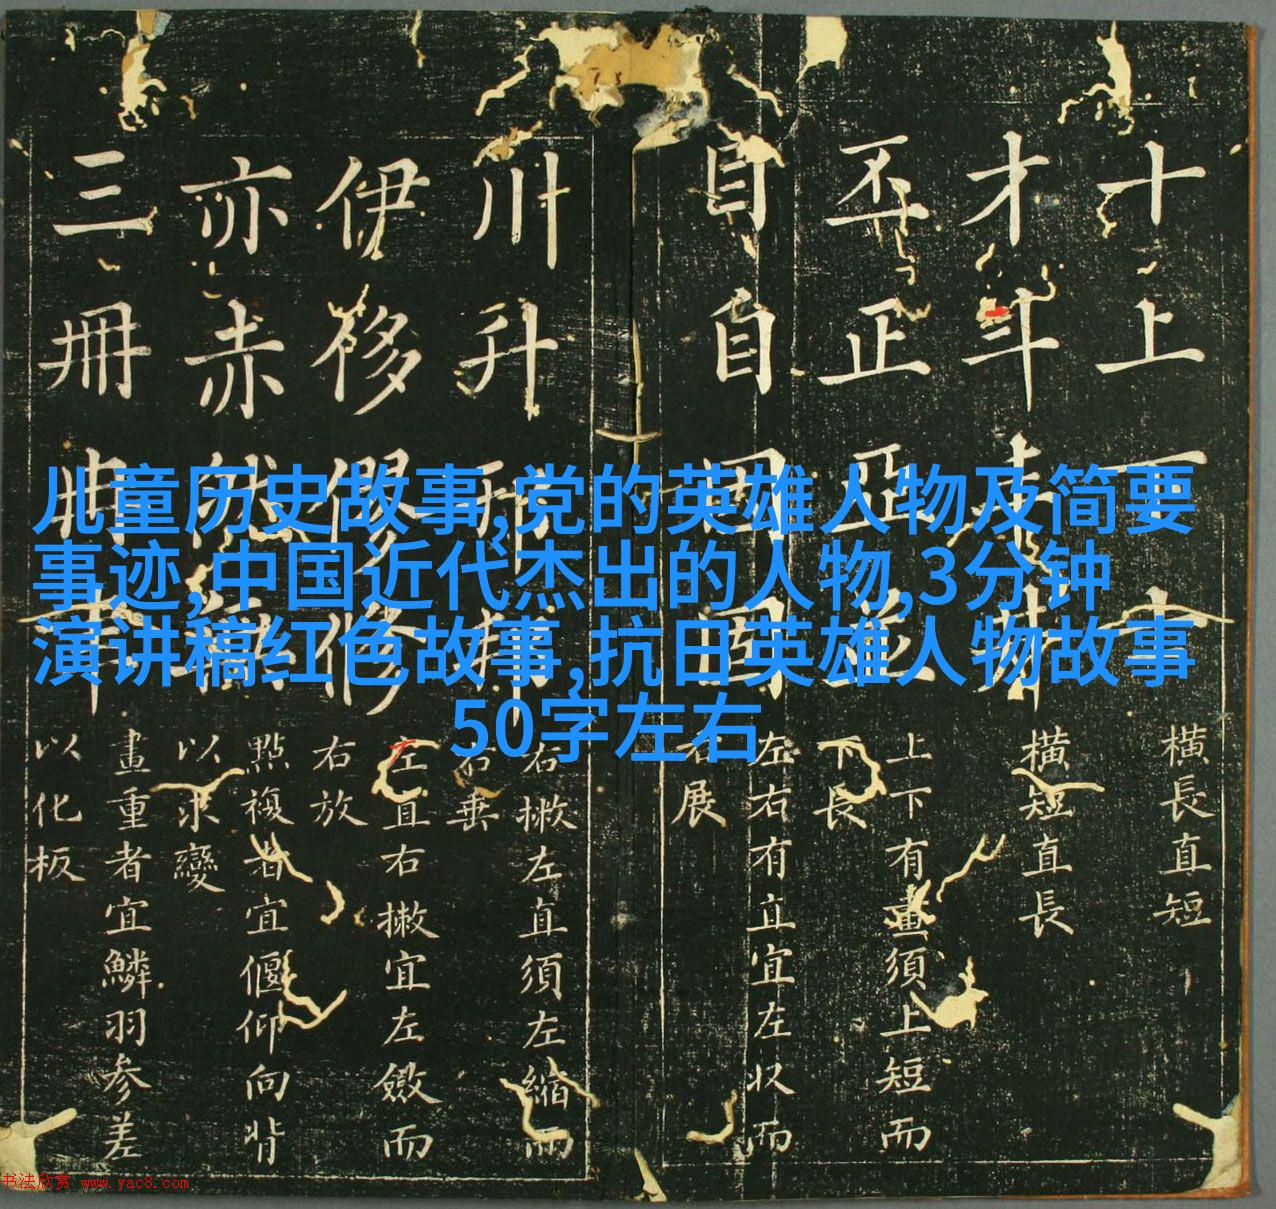 儿童历史故事,党的英雄人物及简要
事迹,中国近代杰出的人物,3分钟
演讲稿红色故事,抗日英雄人物故事
50字左右
十上下士
橫長直短
才斗
橫短直長
丕正亞
上下有畫須上短而
下長
目自因固
左右有直宜左收而
右展
川升
右撇左直須左縮而
右垂
伊移僇修
左直右撇宜左斂而
右放
亦赤
點複者宜偃仰向背
以求變
三冊
畫重者宜鱗羽参差
以化板
书法欣赏 www.yac8.com